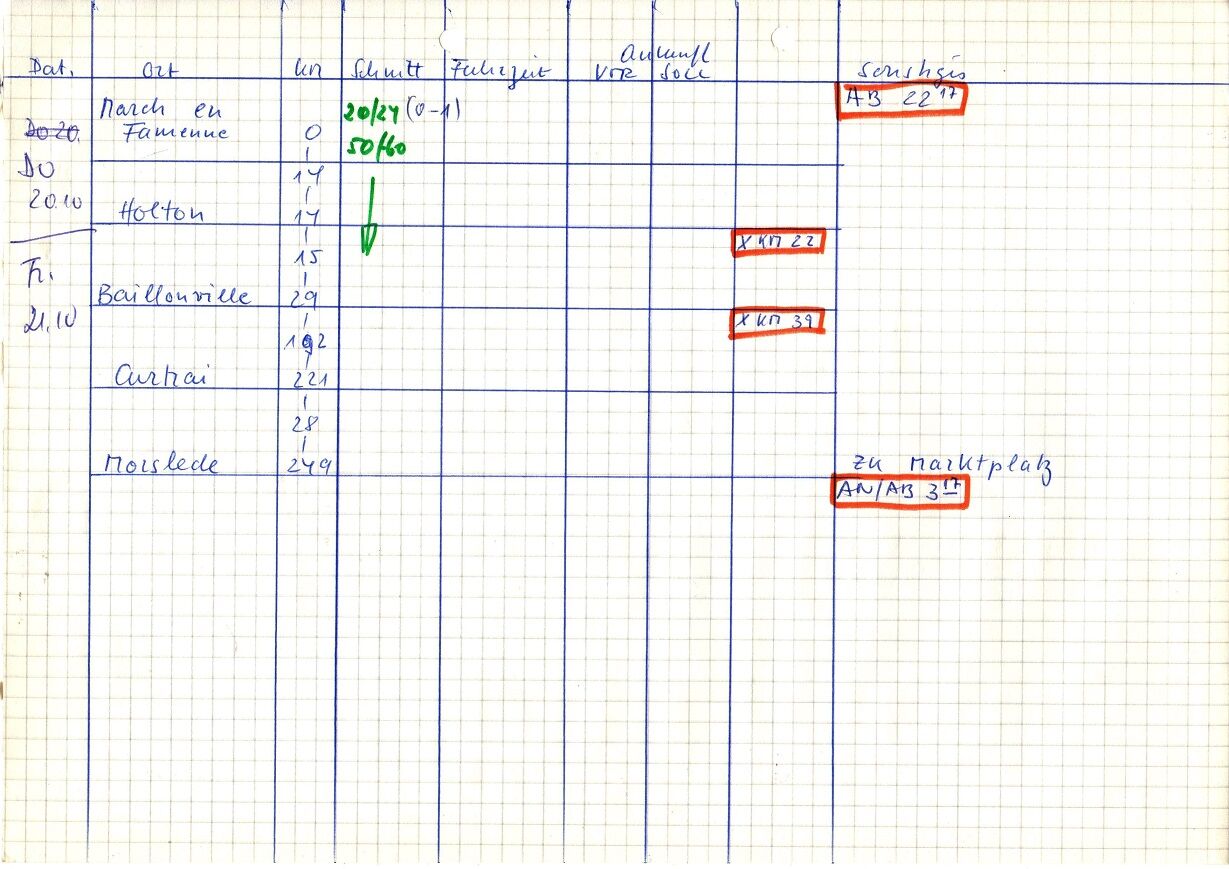 Ankunft
Dat. Ort km Schnitt Fahrzeit vor soll Sonstiges
March en 20/24 (0-1) AB 22 17
Do 20. Famenne 0 50/60
DO 14
20.10 Holton 14
X KM 22
15
Fr. Baillonville 29
21.10 X KM 39
192
Curtrai 221
28
Moislede 249 zu Marktplatz
AN/AB 3 17